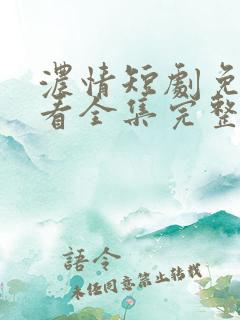 濃情短劇免
看全集完整
語令
未經同意禁止轉載